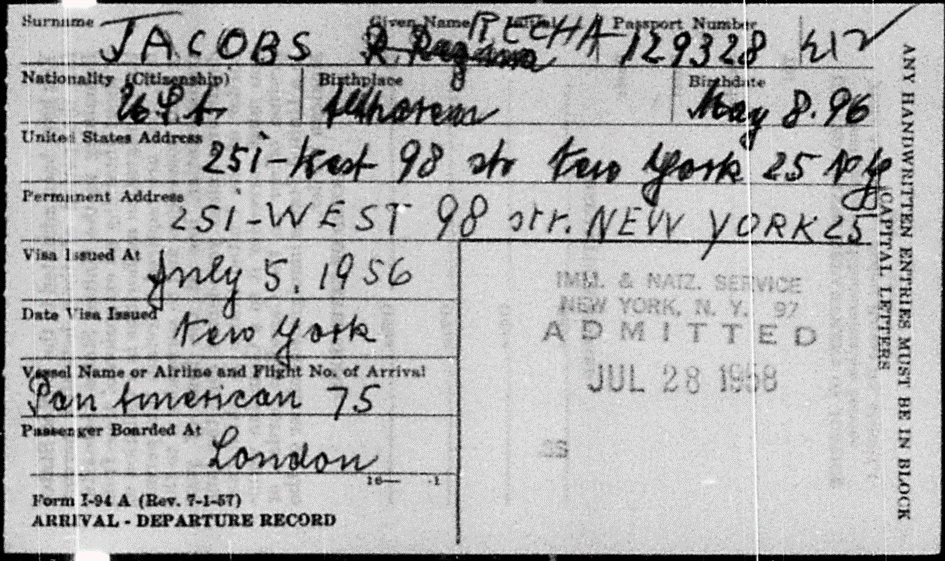 Surname Given Name Initial Passport Number
JACOBS RECHA 129328
Nationality (Citizenship) Birthplace Birthdate
USA May 8.96
United States Address 251-West 98 str New York 25 N.Y
Permanent Address 251-WEST 98 str. NEW YORK 25
Visa Issued At July 5, 1956
Date Visa Issued New York
Vessel Name or Airline and Flight No. of Arrival
Pan American 75
Passenger Boarded At
London
16— -1
Form I-94 A (Rev. 7-1-57)
ARRIVAL - DEPARTURE RECORD
IMM. & NATZ. SERVICE
NEW YORK, N. Y. 97
ADMITTED
JUL 28 1958
ANY HANDWRITTEN ENTRIES MUST BE IN BLOCK
CAPITAL LETTERS